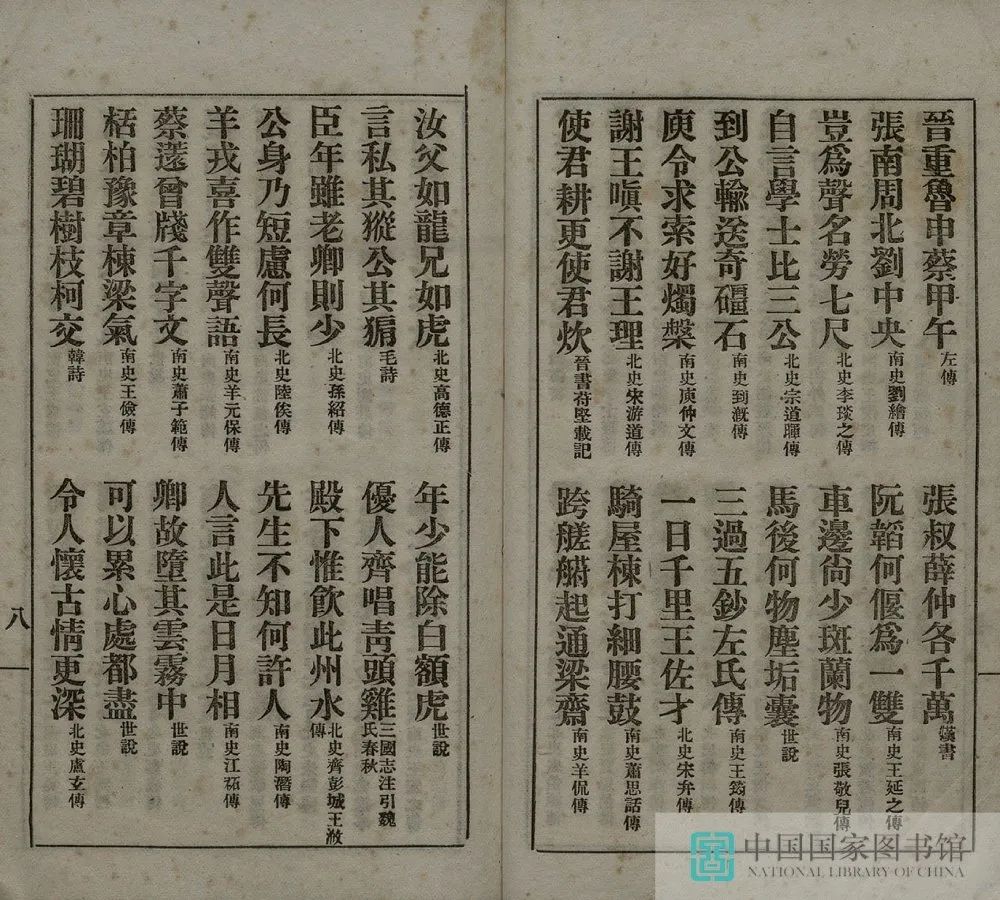 晉重魯申蔡甲午左傳　張叔薛仲各千萬漢書
張南周北劉中央南史劉繪傳　阮韜何偃爲一雙南史王延之傳
豈爲聲名勞七尺北史李琰之傳　車邊尙少斑蘭物南史張敬兒傳
自言學士比三公北史宗道暉傳　馬後何物塵垢囊世說
到公輸送奇礓石南史到漑傳　三過五鈔左氏傳南史王筠傳
庾令求索好燭槃南史庾仲文傳　一日千里王佐才北史宋弁傳
謝王嗔不謝王理北史宋游道傳　騎屋棟打細腰鼓南史蕭思話傳
使君耕更使君炊晉書苻堅載記　跨艖艒起通梁齋南史羊侃傳
汝父如龍兄如虎北史高德正傳　年少能除白額虎世說
言私其豵公其豣毛詩　優人齊唱靑頭雞三國志注引魏氏春秋
臣年雖老卿則少北史孫紹傳　殿下惟飮此州水北史齊彭城王浟傳
公身乃短慮何長北史陸俟傳　先生不知何許人南史陶潛傳
羊戎喜作雙聲語南史羊元保傳　人言此是日月相南史江祏傳
蔡薳曾牋千字文南史蕭子範傳　卿故墮其雲霧中世說
栝柏豫章棟梁氣南史王儉傳　可以累心處都盡世說
珊瑚碧樹枝柯交韓詩　令人懷古情更深北史盧玄傳
八
中国国家图书馆
NATIONAL LIBRARY OF CHINA